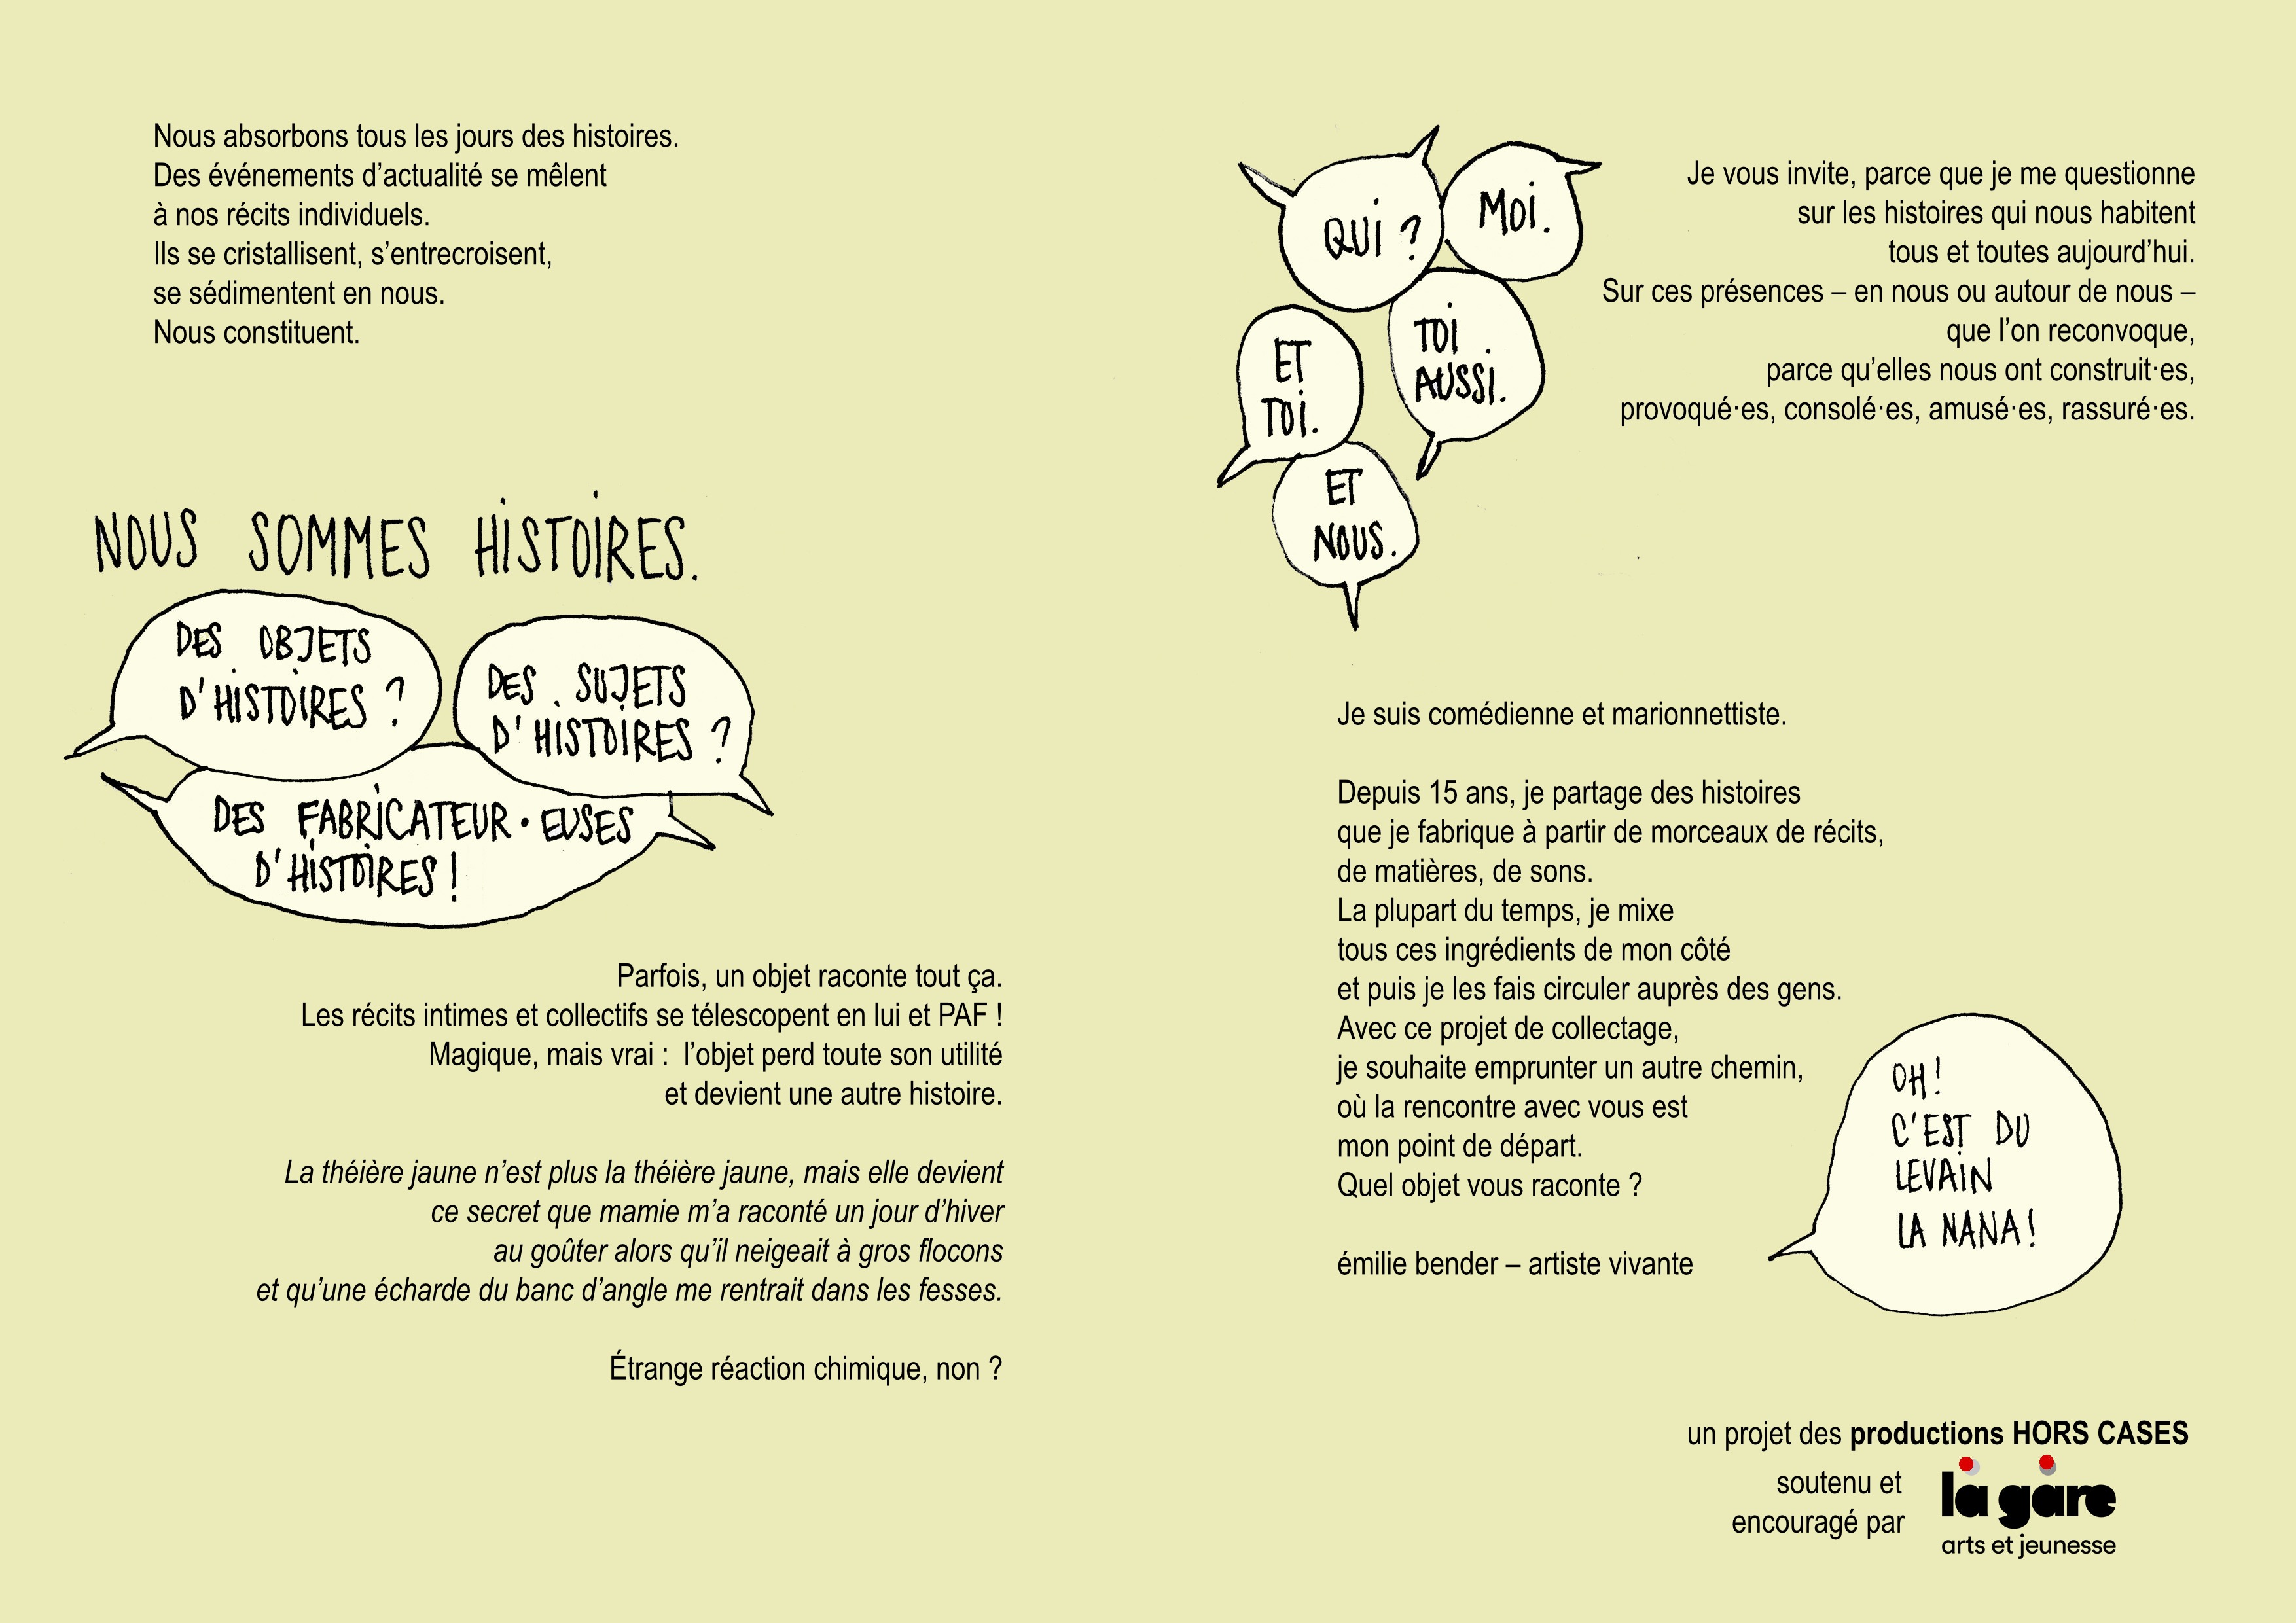 Nous absorbons tous les jours des histoires.
Des événements d’actualité se mêlent
à nos récits individuels.
Ils se cristallisent, s’entrecroisent,
se sédimentent en nous.
Nous constituent.
NOUS SOMMES HISTOIRES.
DES OBJETS
D'HISTOIRES ?
DES SUJETS
D'HISTOIRES ?
DES FABRICATEUR·EUSES
D'HISTOIRES !
Parfois, un objet raconte tout ça.
Les récits intimes et collectifs se télescopent en lui et PAF !
Magique, mais vrai :  l’objet perd toute son utilité
et devient une autre histoire.
La théière jaune n’est plus la théière jaune, mais elle devient
ce secret que mamie m’a raconté un jour d’hiver
au goûter alors qu’il neigeait à gros flocons
et qu’une écharde du banc d’angle me rentrait dans les fesses.
Étrange réaction chimique, non ?
QUI ?
MOI.
TOI
AUSSI.
ET
TOI.
ET
NOUS.
Je vous invite, parce que je me questionne
sur les histoires qui nous habitent
tous et toutes aujourd’hui.
Sur ces présences – en nous ou autour de nous –
que l’on reconvoque,
parce qu’elles nous ont construit·es,
provoqué·es, consolé·es, amusé·es, rassuré·es.
Je suis comédienne et marionnettiste.
Depuis 15 ans, je partage des histoires
que je fabrique à partir de morceaux de récits,
de matières, de sons.
La plupart du temps, je mixe
tous ces ingrédients de mon côté
et puis je les fais circuler auprès des gens.
Avec ce projet de collectage,
je souhaite emprunter un autre chemin,
où la rencontre avec vous est
mon point de départ.
Quel objet vous raconte ?
émilie bender – artiste vivante
OH !
C'EST DU
LEVAIN
LA NANA !
un projet des productions HORS CASES
soutenu et
encouragé par
la gare
arts et jeunesse